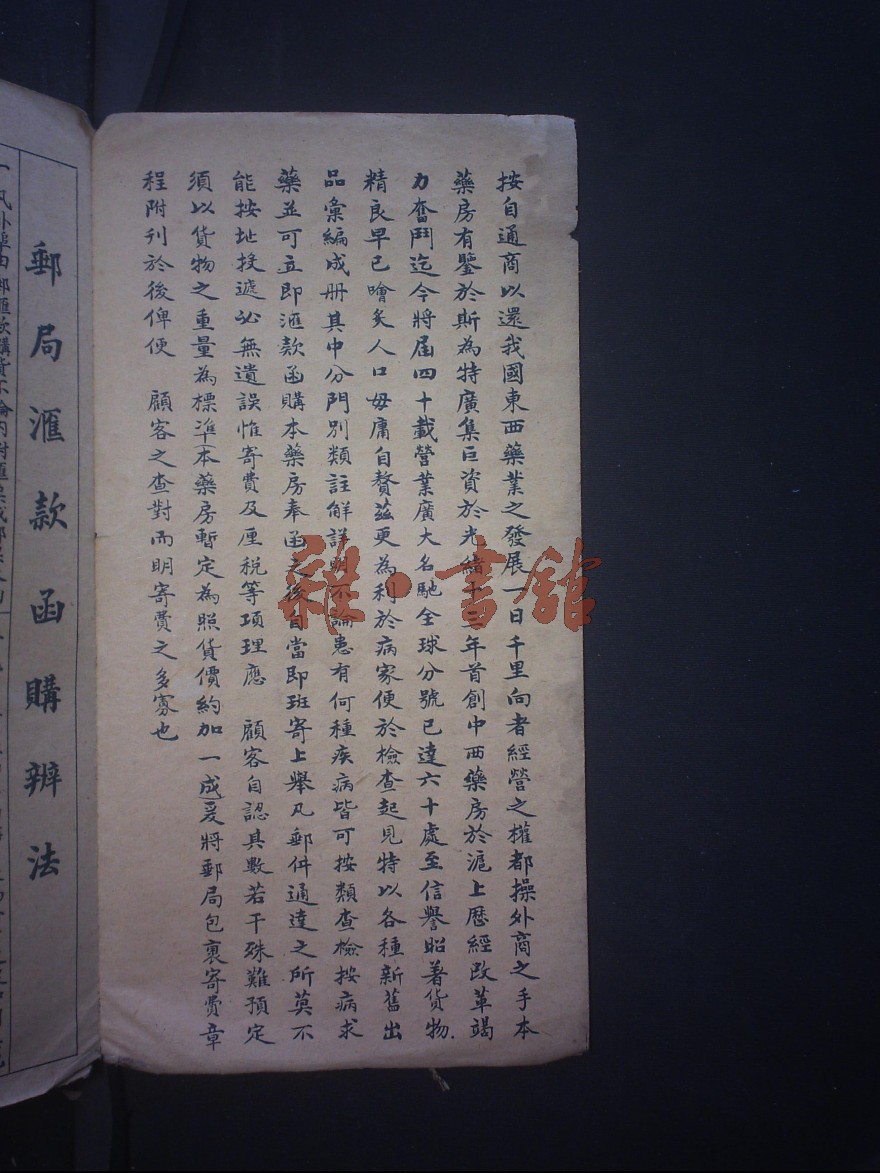 按自通商以還我國東西藥業之發展一日千里向者經營之權都操外商之手本
藥房有鑒於斯為特廣集巨資於光緒十三年首創中西藥房於滬上歷經改革竭
力奮鬥迄今將屆四十載營業廣大名馳全球分號已達六十處至信譽昭著貨物
精良早已噲炙人口毋庸自贅茲更為利於病家便於檢查起見特以各種新舊出
品彙編成册其中分門別類註解詳明不論患有何種疾病皆可按類查檢按病求
藥並可立即滙款函購本藥房奉函之後自當即班寄上舉凡郵件通達之所莫不
能按址投遞必無遺誤惟寄費及厘税等項理應 顧客自認其數若干殊難預定
須以貨物之重量為標準(本藥房暫定為照貨價約加一成)爰將郵局包裹寄費章
程附刊於後俾便 顧客之查對而明寄費之多寡也
郵局滙款函購辦法
雜·書館